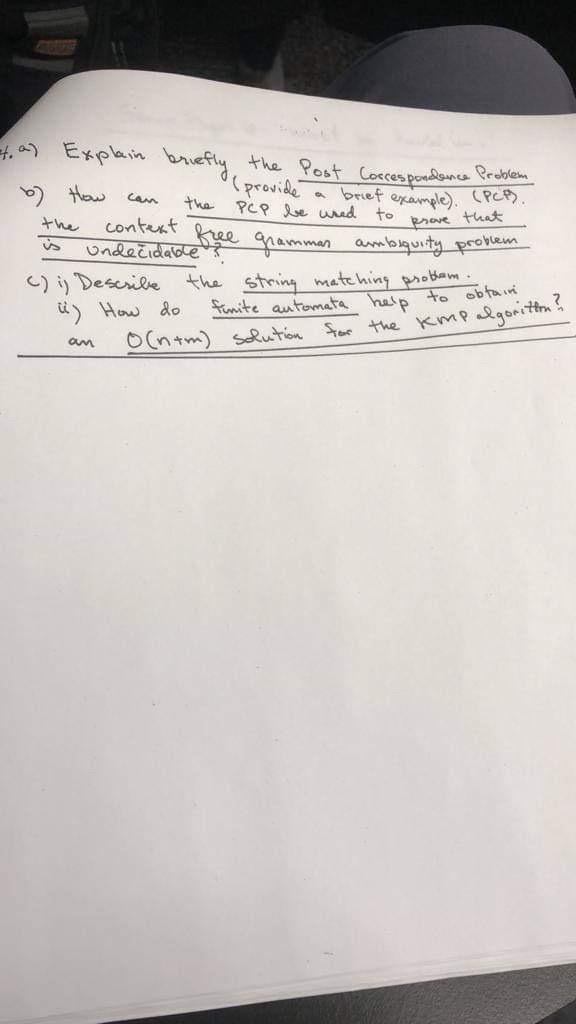 4. a) Explain briefly the Post Correspondence Problem
(provide a brief example). (PCP).
b) How can the PCP be used to prove that
the context free grammar ambiguity problem
is undecidable?
c) i) Describe the string matching problem.
ii) How do finite automata help to obtain
an O(n+m) solution for the KMP algorithm?